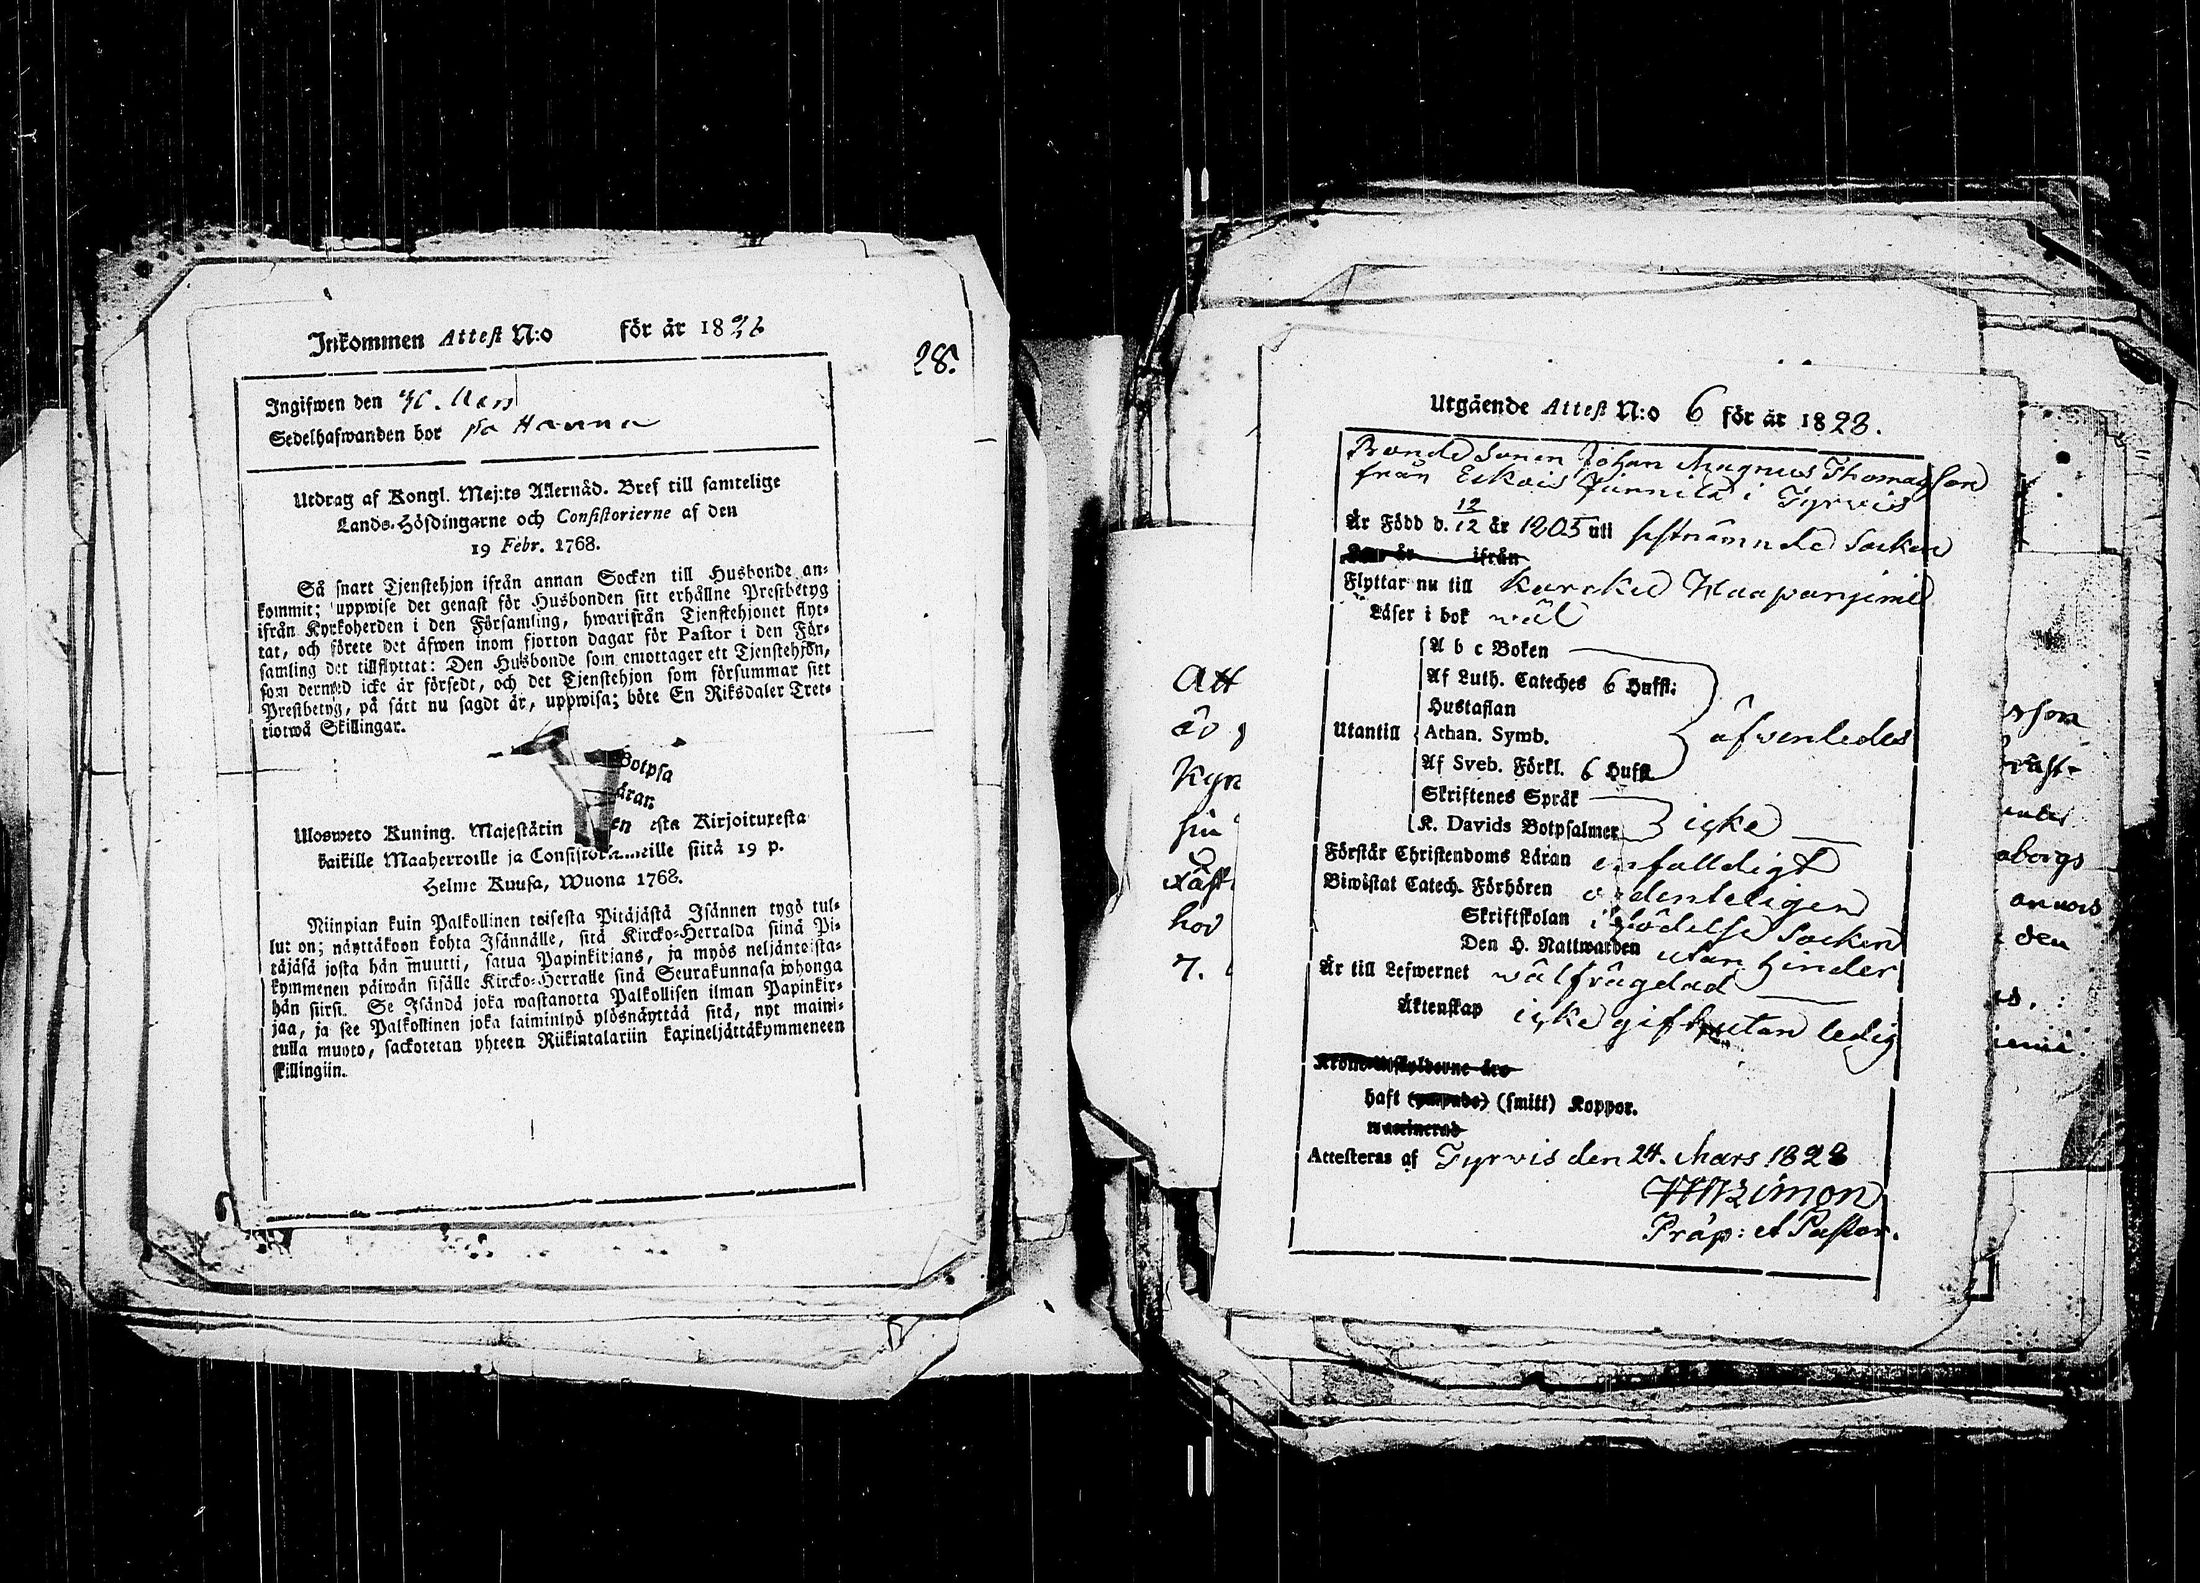 Inkommen Attest N:o för år 18
28.
Ingifwen den Mars
Sedelhafwanden bor på
Utdrag af Kongl. Maj:ts Allernåd. Bref till samtelige
Lands-Höfdingarne och Consistorierne af den
19 Febr. 1768.
Så snart Tjenstehjon ifrån annan Socken till Husbonde an-
kommit; uppwise det genast för Husbonden sitt erhållne Prestbetyg
ifrån Kyrkoherden i den Församling, hwarifrån Tjenstehjonet flyt-
tat, och förete det äfwen inom fjorton dagar för Pastor i den För-
samling det tillflyttat: Den Husbonde som emottager ett Tjenstehjon,
som dermed icke är försedt, och det Tjenstehjon som försummar sitt
Prestbetyg, på sätt nu sagdt är, uppwisa; böte En Riksdaler Tret-
tiotwå Skillingar.
Botpsa
äran
en
Ulosweto Kuning. Majestätin esta Kirjoituxesta
kaikille Maaherroille ja Consistoriumeille siitä 19 p.
Helme Kuusa, Wuona 1768.
Niinpian kuin Palkollinen toisesta Pitäjästä Isännen tygö tul-
lut on; näyttäkoon kohta Isännälle, sitä Kircko-Herralda siinä Pi-
täjäsä josta hän muutti, saatua Papinkirjans, ja myös neljäntoista-
kymmenen päiwän sisälle Kircko-Herralle siinä Seurakunnasa johonga
hän siirsi. Se Isändä joka wastanotta Palkollisen ilman Papinkir-
jaa, ja see Palkollinen joka laiminlyö ylösnäyttää sitä, nyt maini-
tulla muoto, sackotetan yhteen Riikintalariin kaxineljättäkymmeneen
skillingiin.
Utgående Attest N:o 6 för år 1823.
Bondesonen Johan Magnus Thomasson
från Eskois Junnila i Tyrwis
Är Född d. 12/12 år 1805 uti sistnämnde Socken
Flyttar nu till Karcku Haapaniemi
Läser i bok wäl
A b c Boken
Af Luth. Cateches 6 Huffl:
Hustaflan
Utantill Athan. Symb. äfwenledes
Af Sveb. Förkl. 6 Huffl
Skriftenes Språk
K. Davids Botpsalmer icke
Förstår Christendoms Läran enfalldigt
Biwistat Catech. Förhören ordenteligen
Skriftskolan i födelse Socken
Den H. Nattwarden utan hinder
Är till Lefwernet wälfrägdad
Äktenskap icke gift utan ledig
haft (smitt) Koppor.
Attesteras af Tyrwis den 24. Mars 1823
Präp: et Pastor.
Att
Kyr
hos
7.
sson
aborgs
annors
den